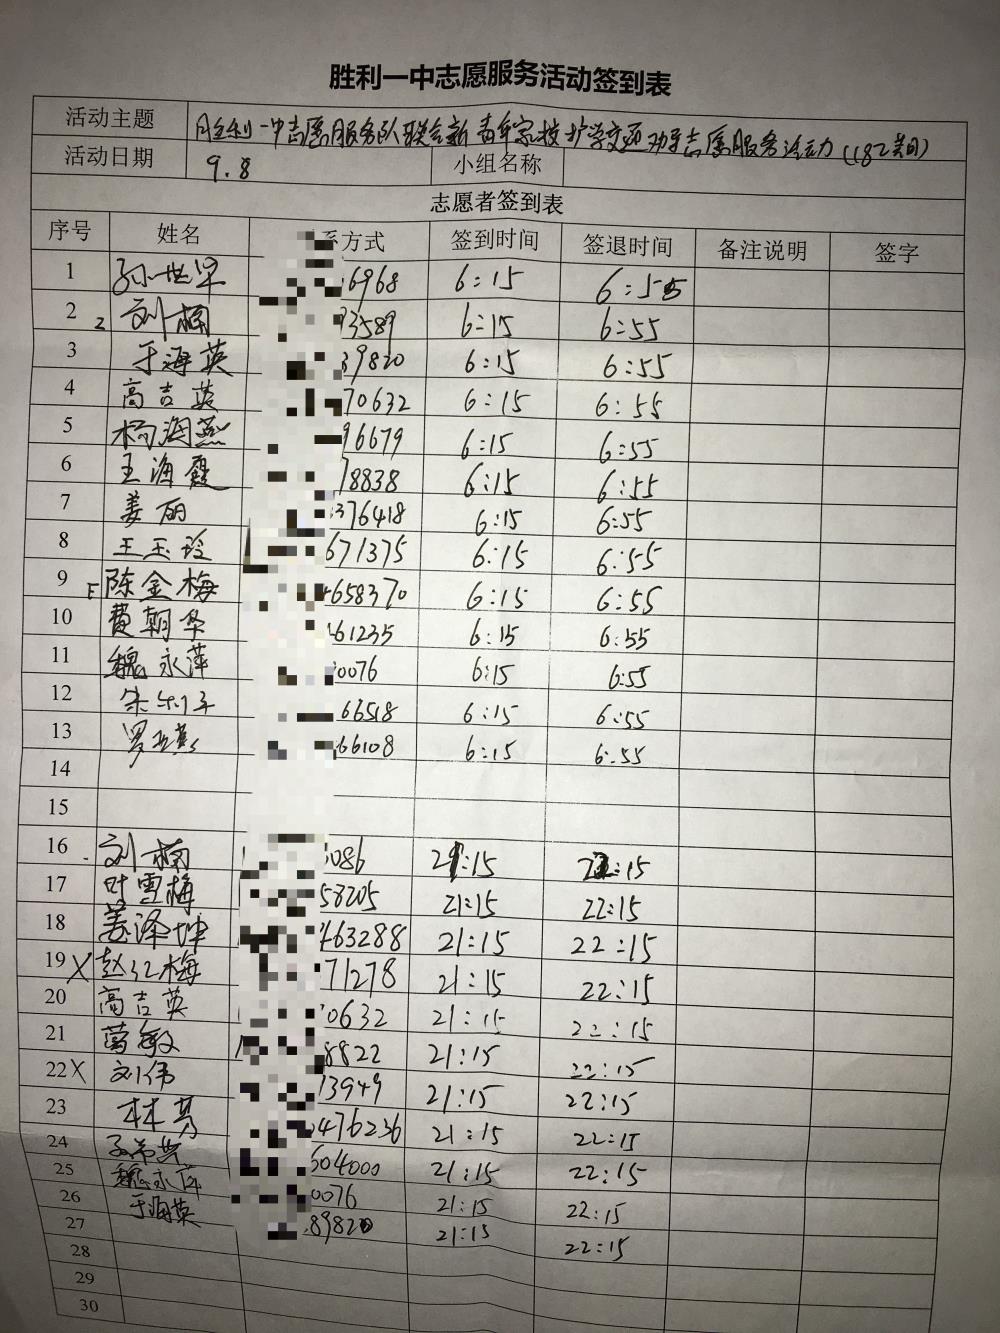 胜利一中志愿服务活动签到表
活动主题 胜利一中志愿服务队联合新青年家校护学交通劝导志愿服务活动
活动日期 9.8 小组名称
志愿者签到表
序号 姓名 系方式 签到时间 签退时间 备注说明 签字
1 孙世军 6968 6:15 6:55
2 2 刘楠 3589 6:15 6:55
3 于海英 39820 6:15 6:55
4 高吉英 70632 6:15 6:55
5 杨海燕 96679 6:15 6:55
6 王海霞 78838 6:15 6:55
7 姜丽 376418 6:15 6:55
8 王玉玲 671375 6:15 6:55
9 陈金梅 4658370 6:15 6:55
10 费朝华 461235 6:15 6:55
11 魏永萍 0076 6:15 6:55
12 朱 66518 6:15 6:55
13 罗 66108 6:15 6:55
14
15
16 刘楠 5086 21:15 22:15
17 叶雪梅 58205 21:15 22:15
18 姜泽坤 463288 21:15 22:15
19 X 赵红梅 71278 21:15 22:15
20 高吉英 0632 21:15 22:15
21 葛敏 8822 21:15 22:15
22 X 刘伟 13949 21:15 22:15
23 林芳 476236 21:15 22:15
24 604000 21:15 22:15
25 魏永萍 0076 21:15 22:15
26 于海英 89820 21:15 22:15
27
28
29
30